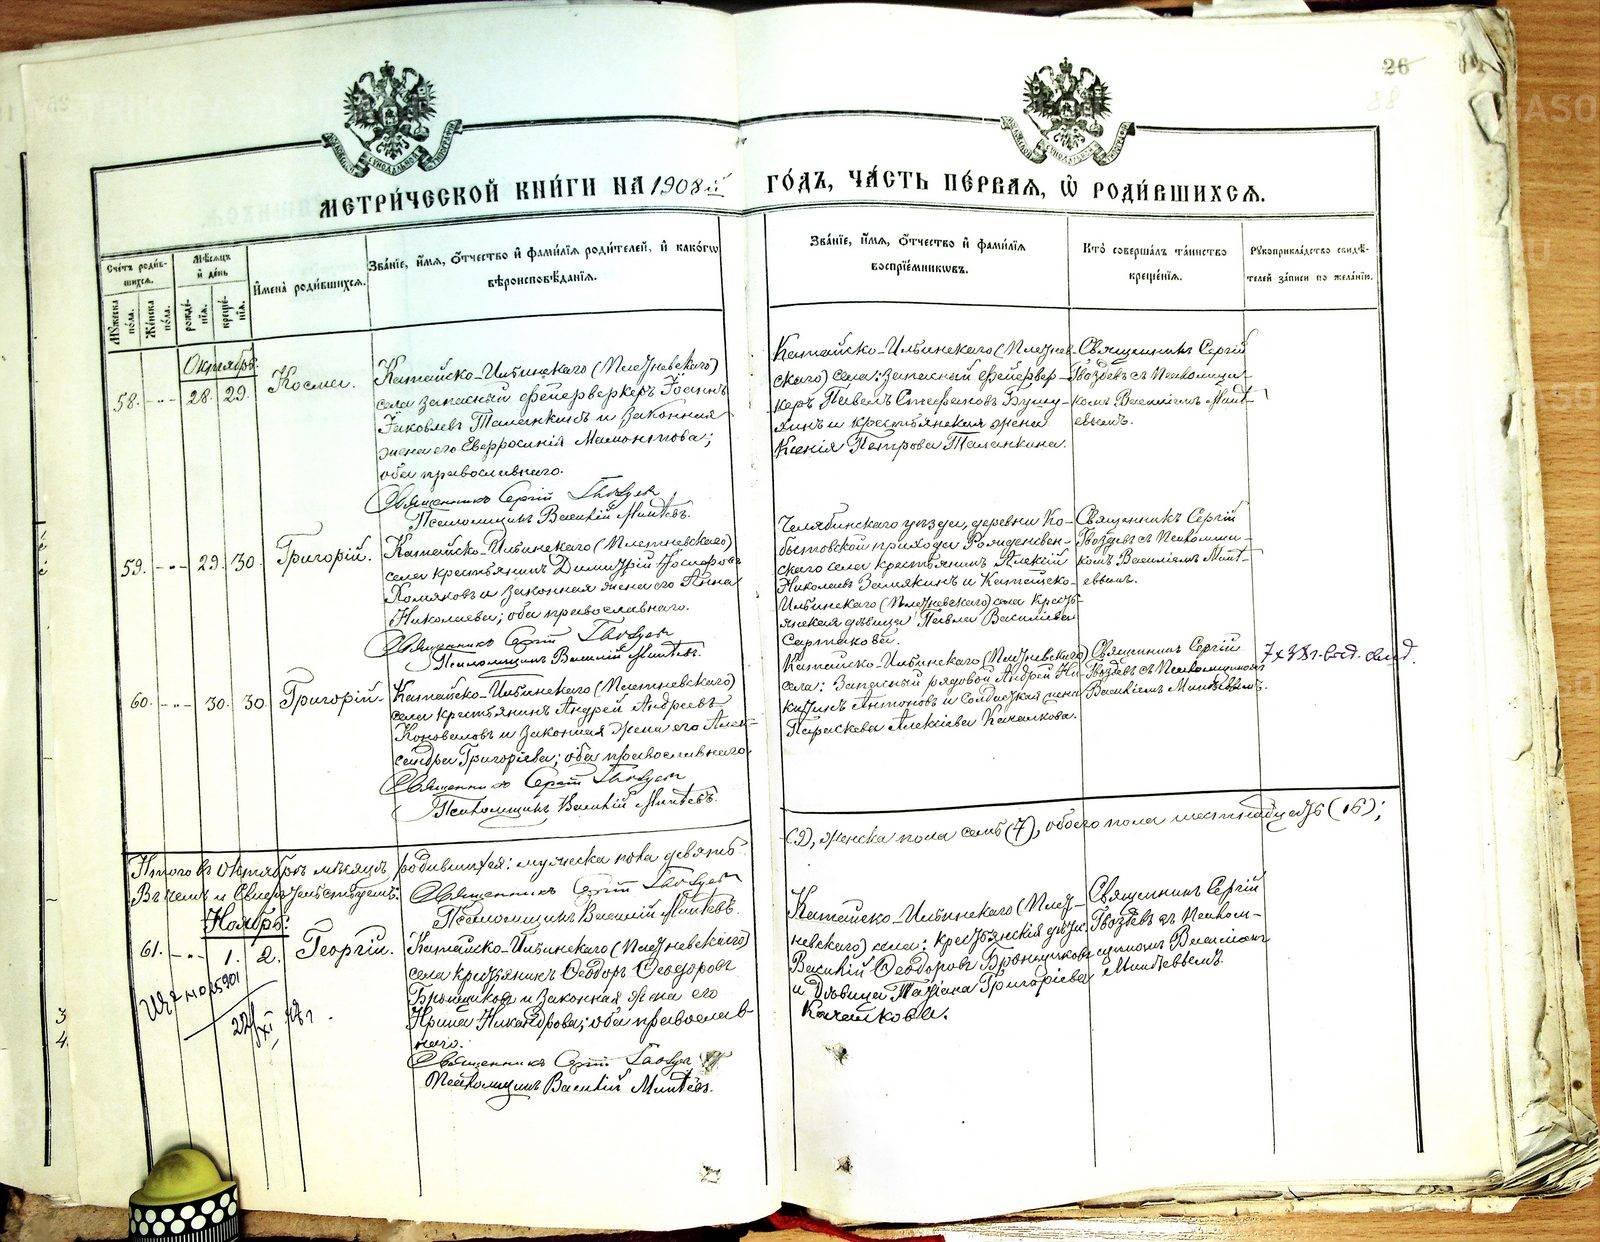 26
МЕТРИ́ЧЕСКОЙ КНИ́ГИ НА 1908й ГО́ДЪ, ЧА́СТЬ ПЕ́РВАЯ, Ѡ РОДИ́ВШИХСЯ.
Сче́тъ роди́вшихся.
Му́жеска по́ла.
Же́нска по́ла.
Мѣ́сяцъ и де́нь
рожде́нія.
креще́нія.
Имена̀ роди́вшихся.
Зва́ніе, и́мя, о́тчество и фами́лія роди́телей, и како́гѡ
вѣроисповѣ́данія.
Зва́ніе, и́мя, о́тчество и фами́лія
воспріе́мникѡвъ.
Кто̀ соверша́лъ та́инство
креще́нія.
Рукоприкла́дство свидѣ́-
телей за́писи по жела́нію.
Октябрь:
58. - " - 28. 29. Космa.
Катайско-Ильинскаго (Плетневскаго)
села запасный фейерверкеръ Іоаннъ
Іаковлевъ Таланкинъ и законная
жена его Евфросинія Мамонтова;
оба православнаго.
Священникъ Сергій Гвоздевъ
Псаломщикъ Василій Минѣевъ.
Катайско-Ильинскаго (Плетнев-
скаго) села: запасный фейервер-
керъ Павелъ Стефановъ
и крестьянская жена
Ксенія Петрова Таланкина.
Священникъ Сергій
Гвоздевъ съ Псаломщи-
комъ Василіемъ Минѣ-
евымъ.
59. - " - 29. 30. Григорій.
Катайско-Ильинскаго (Плетневскаго)
села крестьянинъ Димитрій Іосифовъ
Хомяковъ и законная жена его Анна
Николаева; оба православнаго.
Священникъ Сергій Гвоздевъ
Псаломщикъ Василій Минѣевъ.
Челябинскаго уѣзда, деревни Ко-
бытовской прихода Рождествен-
скаго села крестьянинъ Алексій
Николаевъ Замякинъ и Катайско-
Ильинскаго (Плетневскаго) села кресть-
янская дѣвица Павла Василіева
Сартакова.
Священникъ Сергій
Гвоздевъ съ Псаломщи-
комъ Василіемъ Минѣ-
евымъ.
60. - " - 30. 30. Григорій.
Катайско-Ильинскаго (Плетневскаго)
села крестьянинъ Андрей Андреевъ
Коноваловъ и законная жена его Алек-
сандра Григоріева; оба православнаго
Священникъ Сергій Гвоздевъ
Псаломщикъ Василій Минѣевъ.
Катайско-Ильинскаго (Плетневскаго)
села: Запасный рядовой Андрей Ни-
китинъ Антоновъ и солдатская жена
Параскева Алексіева Качалкова.
Священникъ Сергій
Гвоздевъ съ Псаломщикомъ
Василіемъ Минѣевымъ.
Итого въ октябрѣ мѣсяцѣ родившихся: мужеска пола девять
(9), женска пола семь (7), обоего пола шестнадцать (16);
Въ чемъ и свидѣтельствуемъ:
Священникъ Сергій Гвоздевъ
Псаломщикъ Василій Минѣевъ.
Ноябрь:
61. - " - 1. 2. Георгій.
Катайско-Ильинскаго (Плетневскаго)
села крестьянинъ Ѳеодоръ Ѳеодоровъ
Бронниковъ и законная жена его
Ирина Никандрова; оба православ-
наго.
Священникъ Сергій Гвоздевъ
Псаломщикъ Василій Минѣевъ.
Катайско-Ильинскаго (Плет-
невскаго) села: крестьянскія дѣти
Василій Ѳеодоровъ Бронниковъ
и дѣвица Татіана Григоріева
Качалкова.
Священникъ Сергій
Гвоздевъ съ Псалом-
щикомъ Василіемъ
Минѣевымъ.